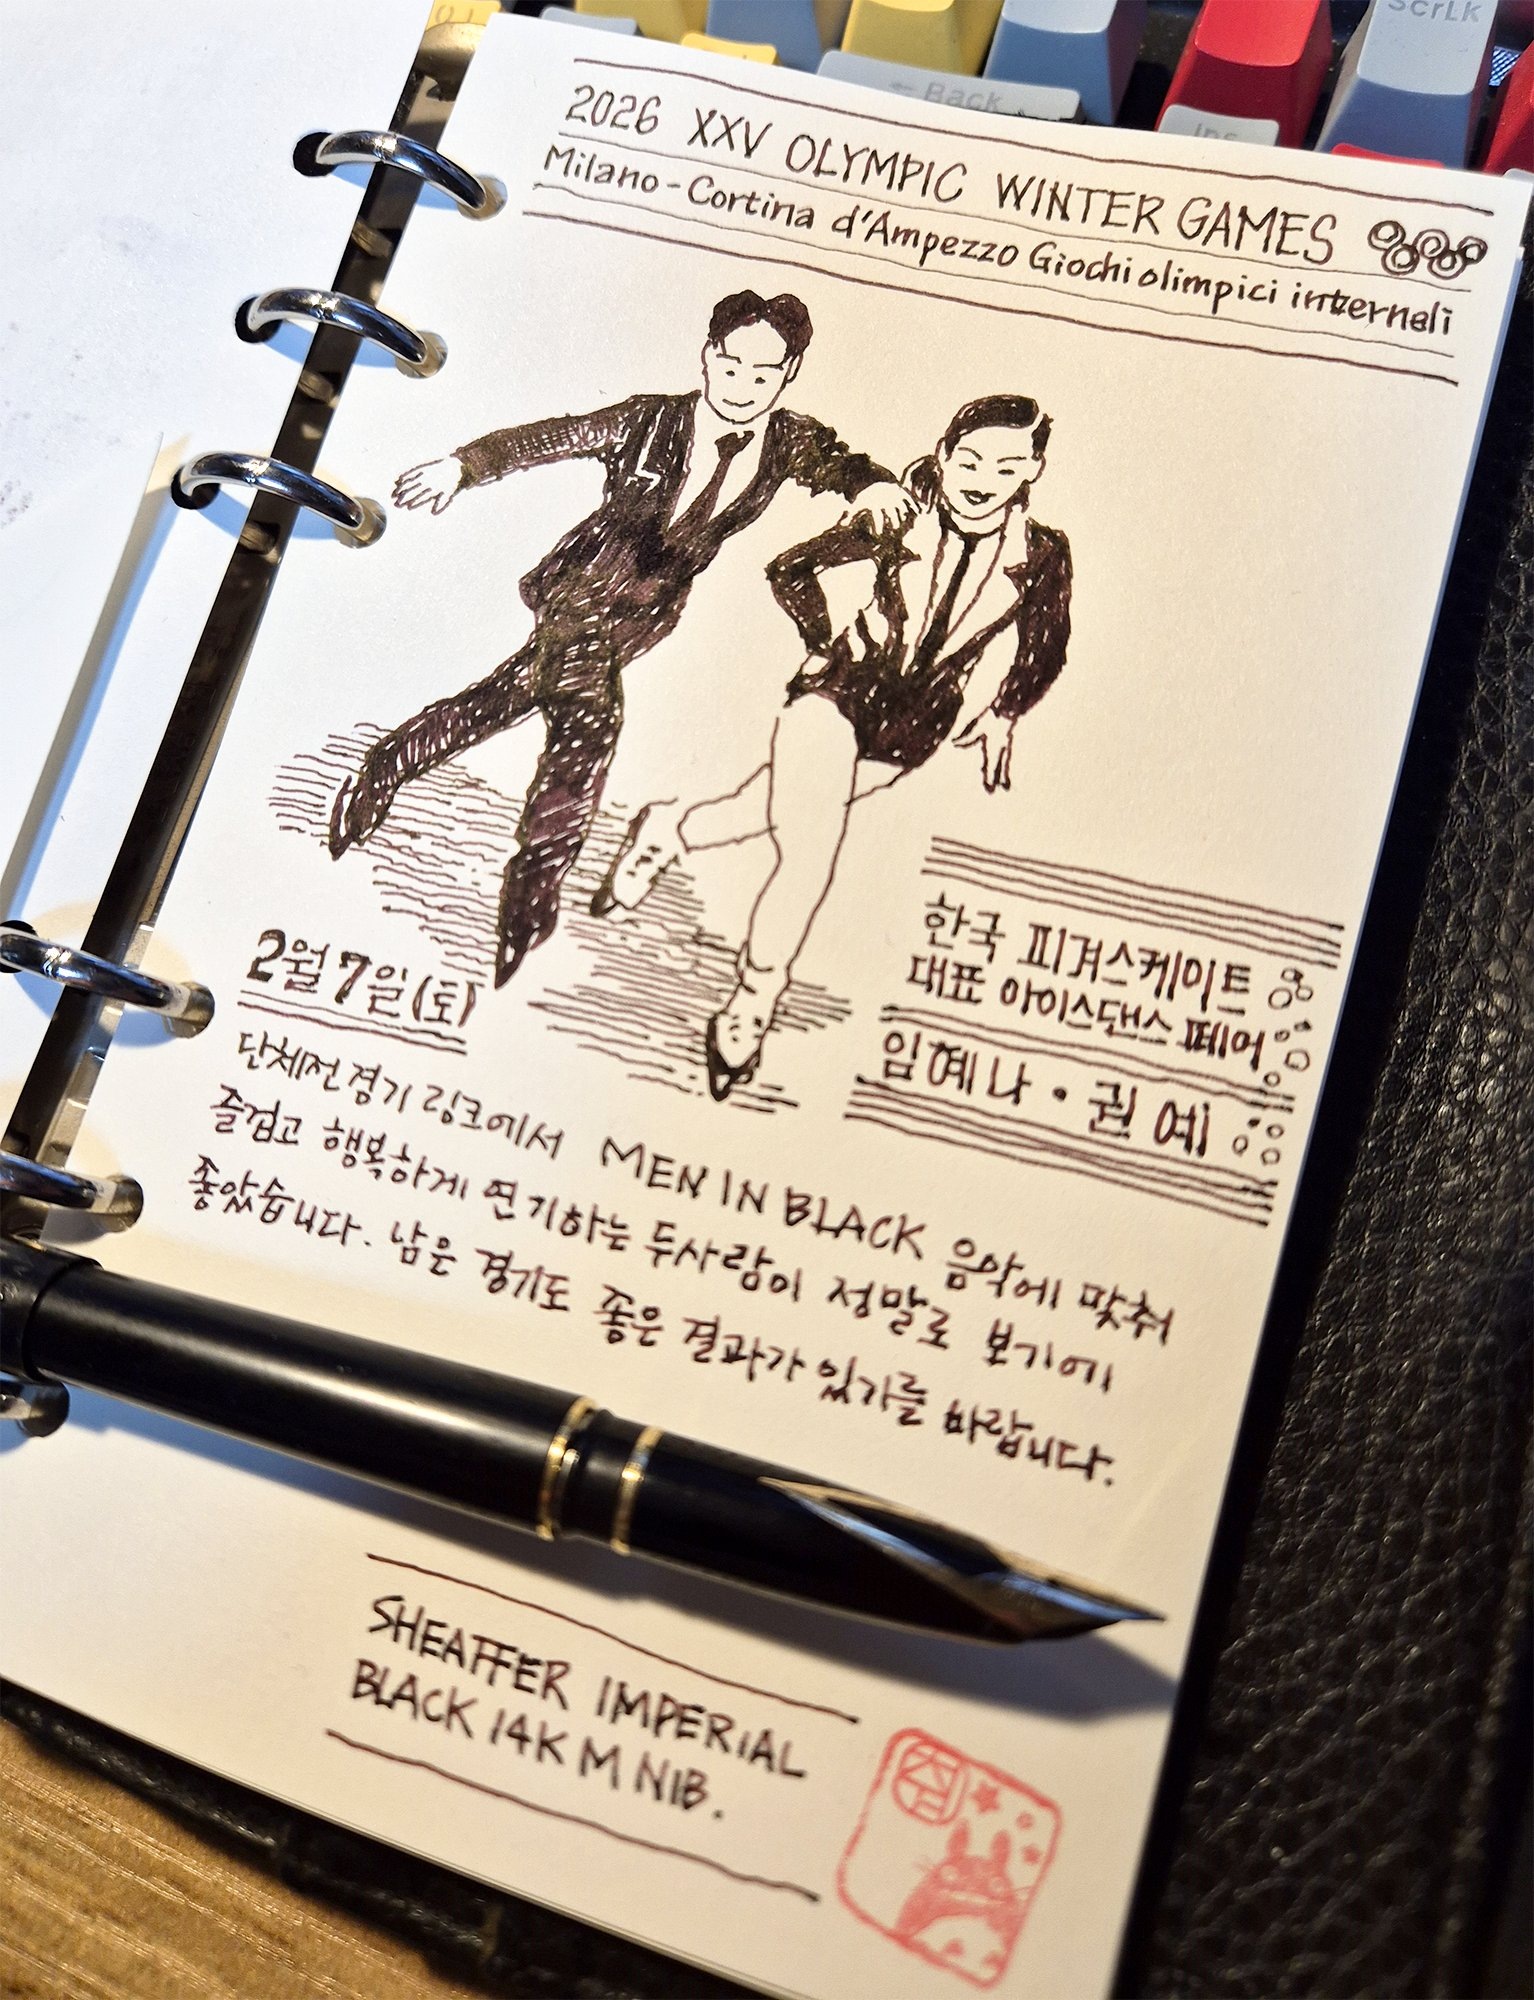 ScrLk
← Back
Ins
2026 XXV OLYMPIC WINTER GAMES
Milano-Cortina d'Ampezzo Giochi olimpici interneli
한국 피겨스케이트
대표 아이스댄스 페어
임예나 · 권예
2월 7일(토)
단체전 경기 링크에서 MEN IN BLACK 음악에 맞춰
즐겁고 행복하게 연기하는 두사람이 정말로 보기에
좋았습니다. 남은 경기도 좋은 결과가 있기를 바랍니다.
SHEAFFER IMPERIAL
BLACK 14K M NIB.